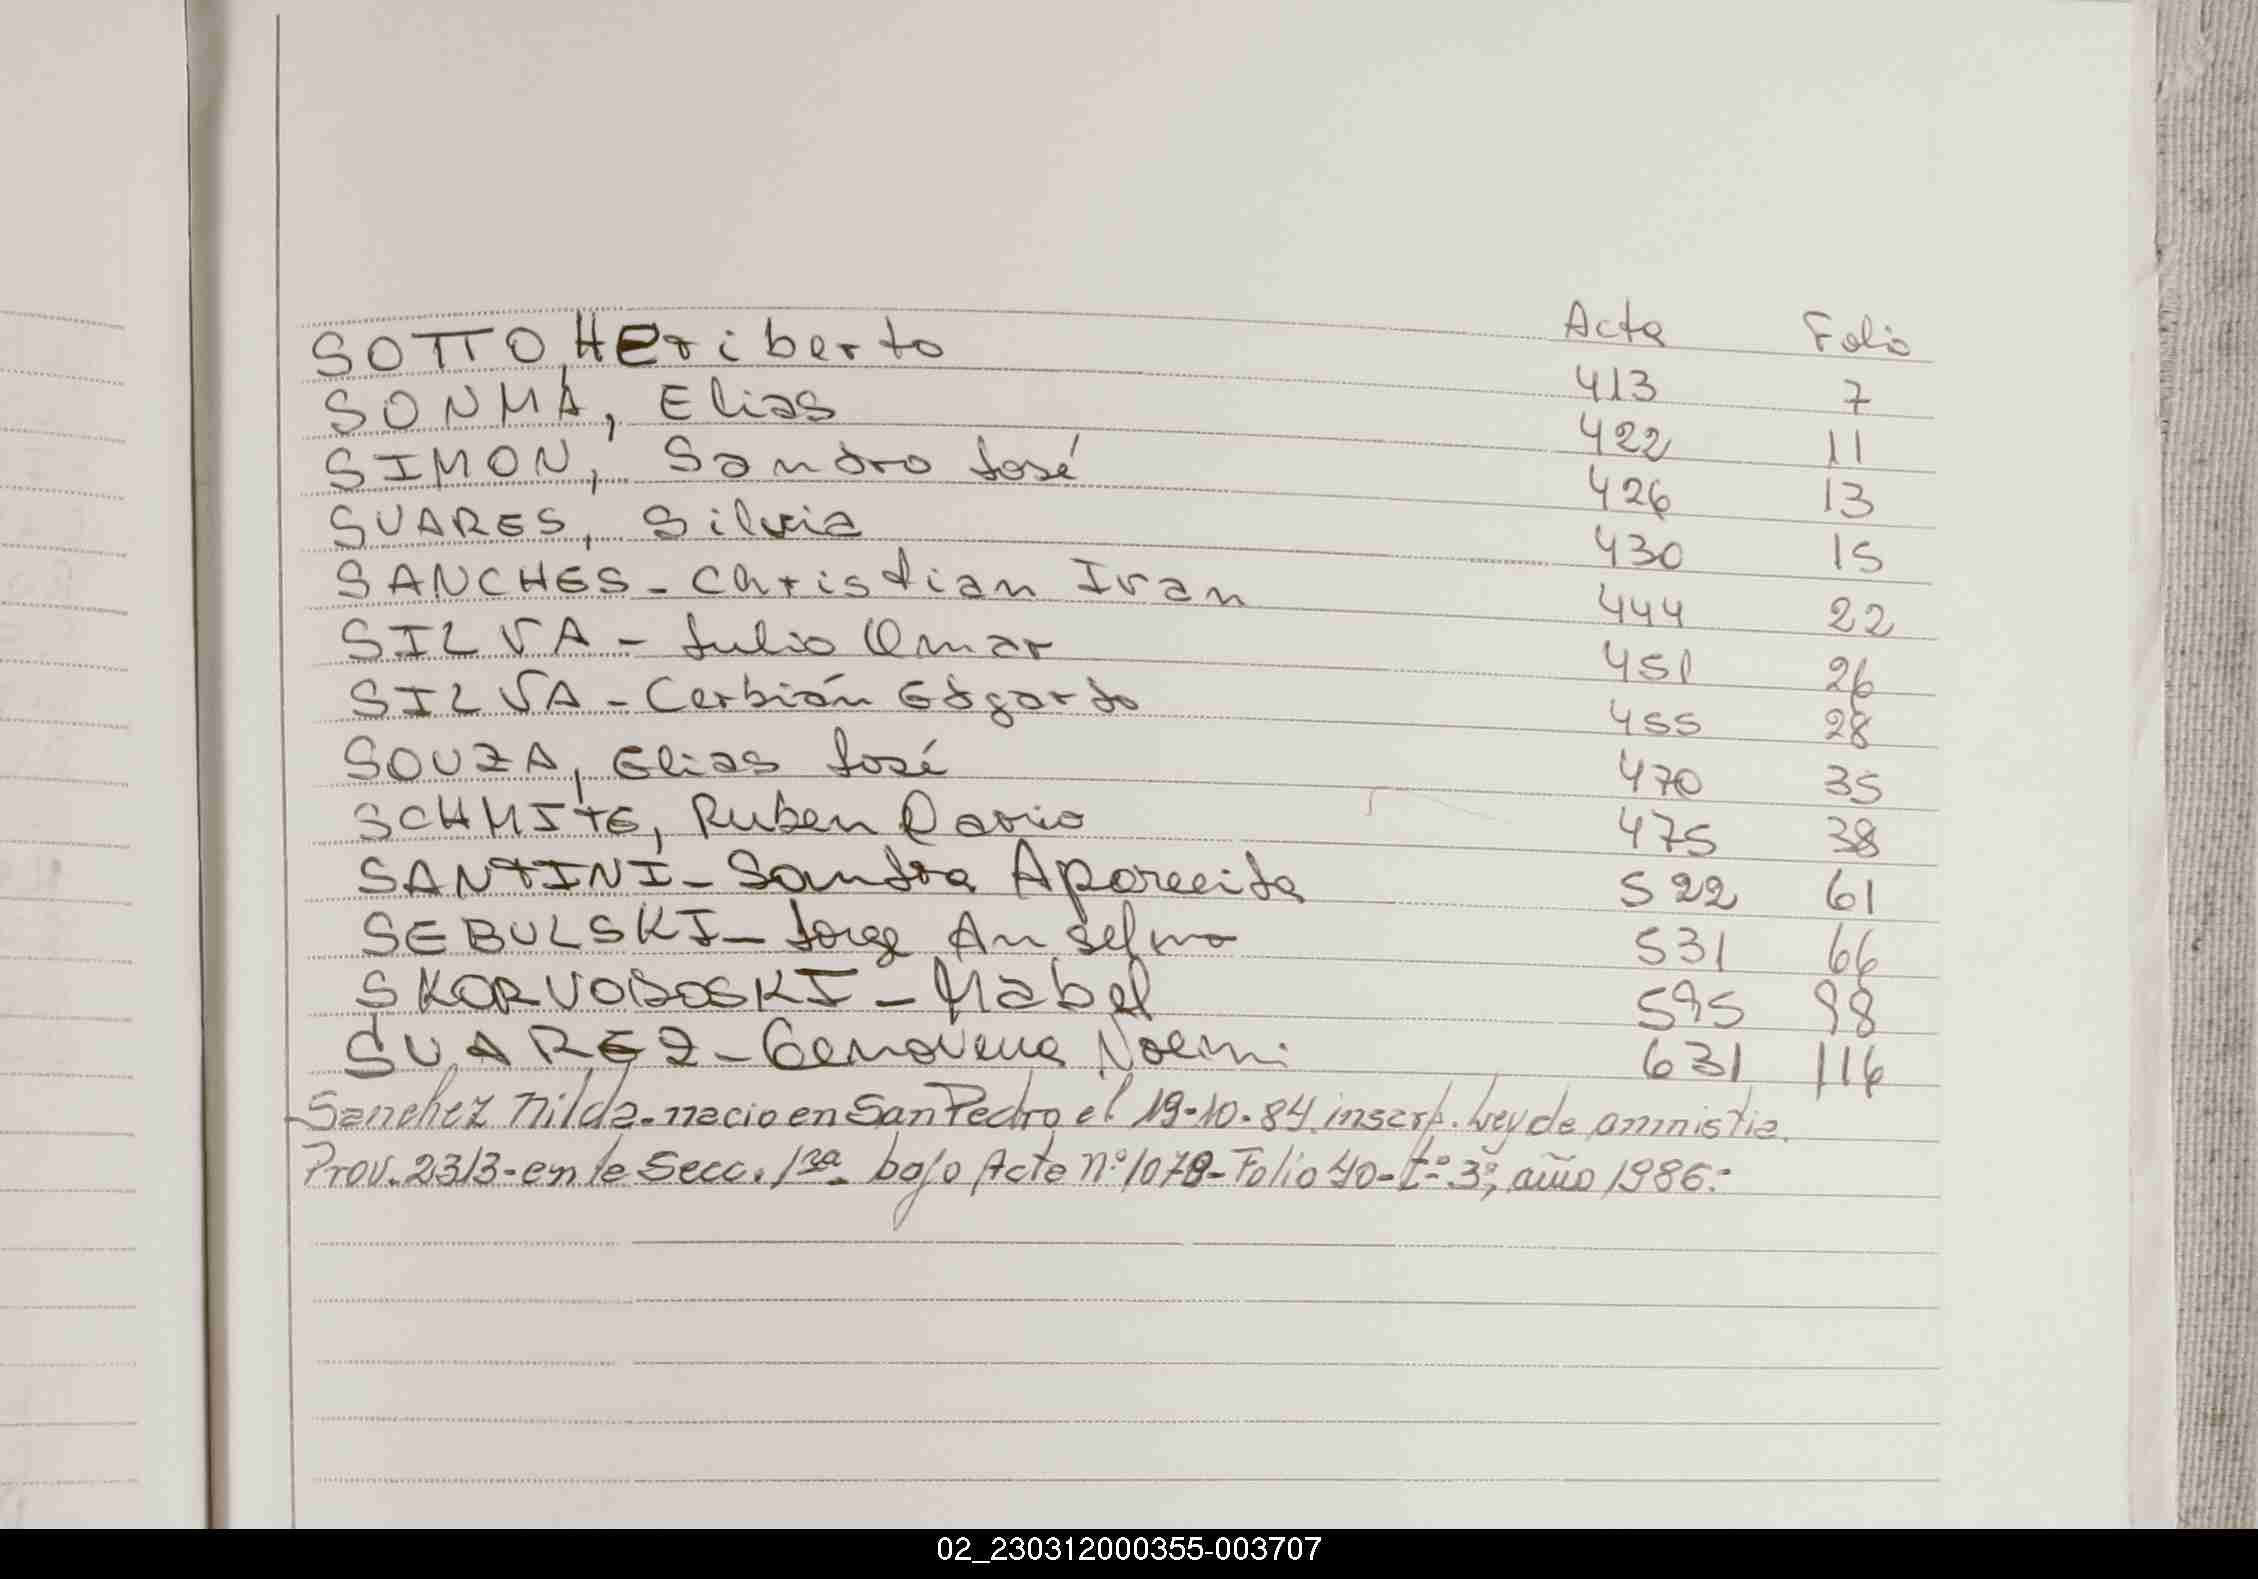 Acta Folio
SOTTO, Heriberto 413 7
SONMA, Elias 422 11
SIMON, Sandro José 426 13
SUARES, Silvia 430 15
SANCHES - Christian Ivan 444 22
SILVA - Julio Omar 451 26
SILVA - Cerbián Edgardo 455 28
SOUZA, Elias José 470 35
SCHMITE, Ruben Dario 475 38
SANTINI - Sandra Aparecida 522 61
SEBULSKI - Jorge Anselmo 531 66
SKORVOBOSKI - Mabel 595 98
SUAREZ - Genoveva Noemi 631 116
Sanchez Nilda - nacio en San Pedro el 19-10-84. inscrp. Ley de amnistia.
Prov. 2313 - en la Secc. 1ra. bajo Acta nº 1079 - Folio 40 - tº 3º, año 1986.-
02_230312000355-003707